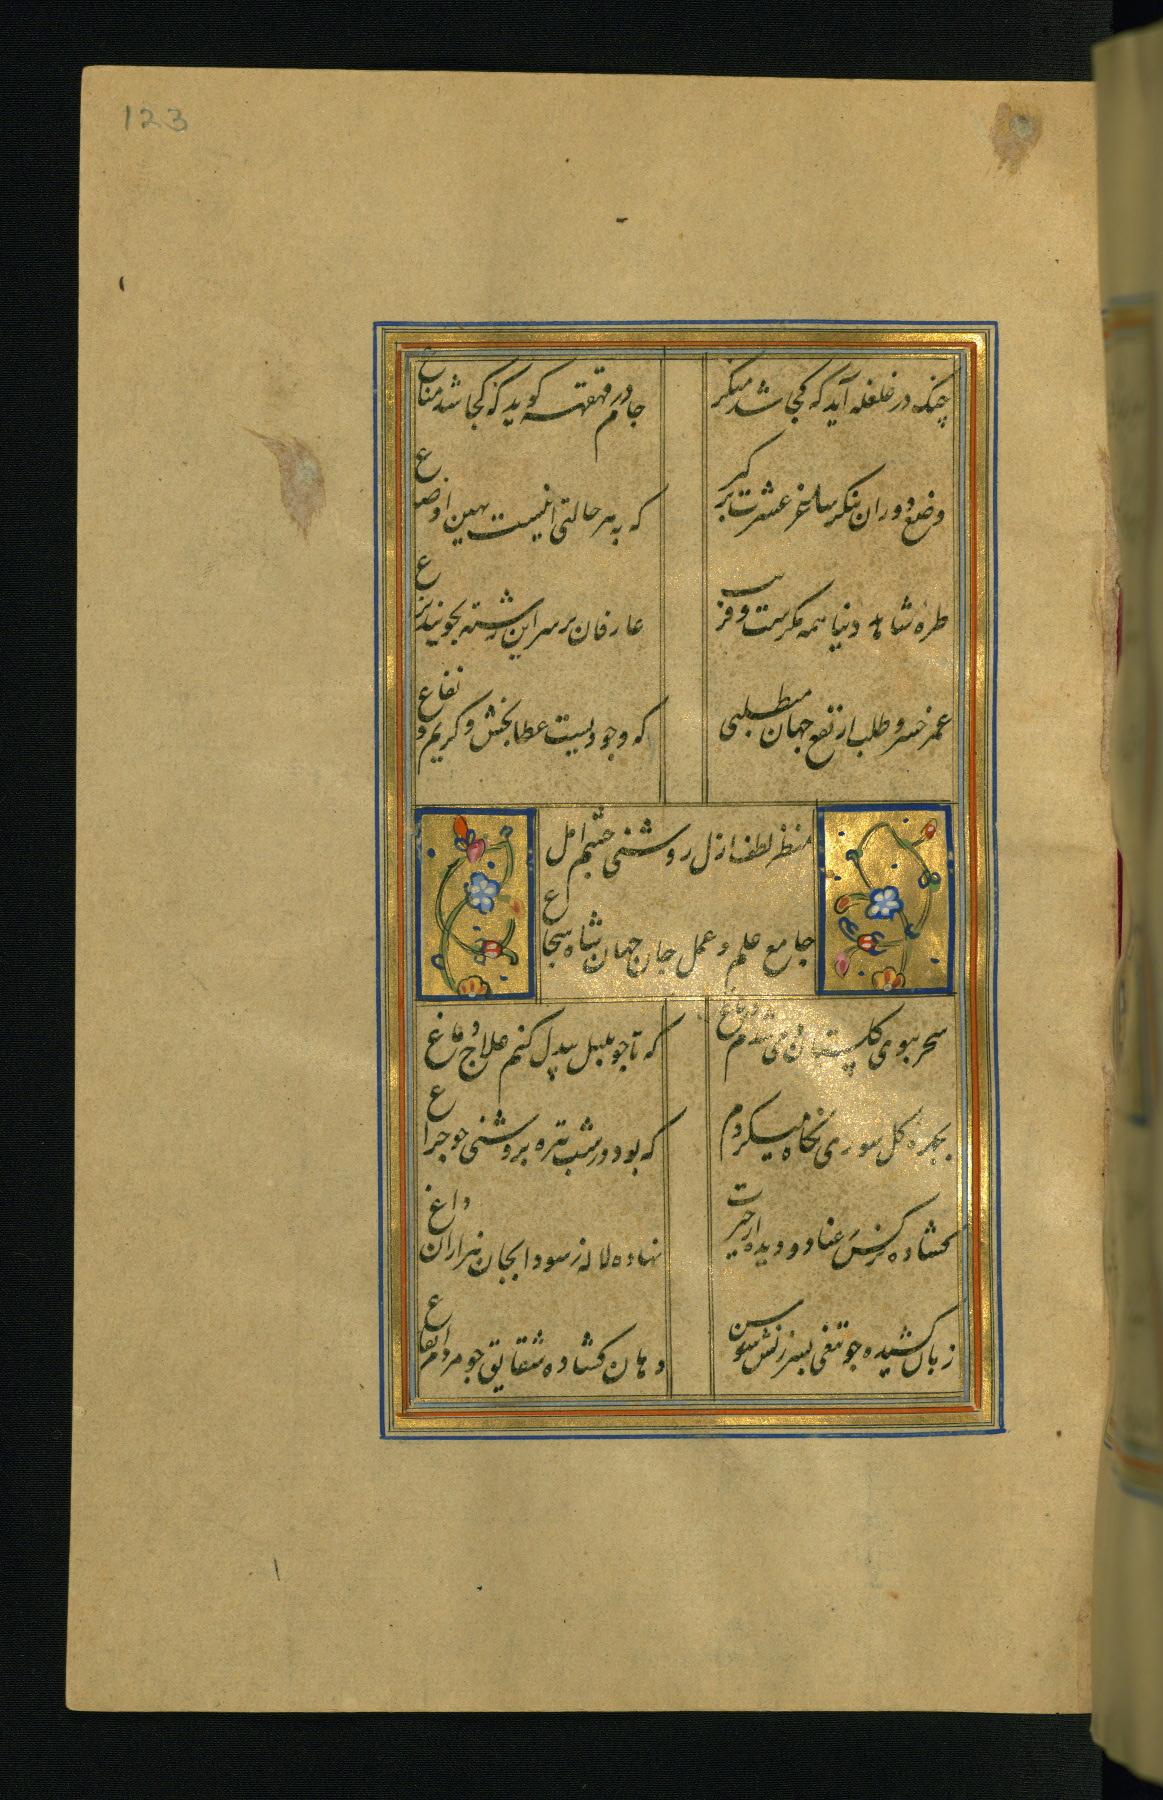 123
چنک در غلغله آید که کجا شد منکر
جام در قهقهه کوید که کجا شد مناع
وضع دوران بنکر ساغر عشرت برکیر
که به هر حالتی اینست بهین اوضاع
طره شاهد دنیا همه مکرست و فریب
عارفان بر سر این رشته نجویند نزاع
عمر خسرو طلب ار نفع جهان میطلبی
که وجودیست عطابخش و کریم و نفاع
مظهر لطف ازل روشنی چشم امل
جامع علم و عمل جان جهان شاه شجاع
سحر ببوی کلستان می شدم در باغ
که تا چو بلبل بیدل کنم علاج دماغ
بچهره کل سوری نکاه میکردم
که بود در شب تیره بروشنی چو چراغ
کشاده نرکس رعنا دو دیده از حیرت
نهاده لاله ز سودا بجان هزاران داغ
زبان کشیده چو تیغی بسرزنش سوسن
دهان کشاده شقایق چو مردم ایقاع